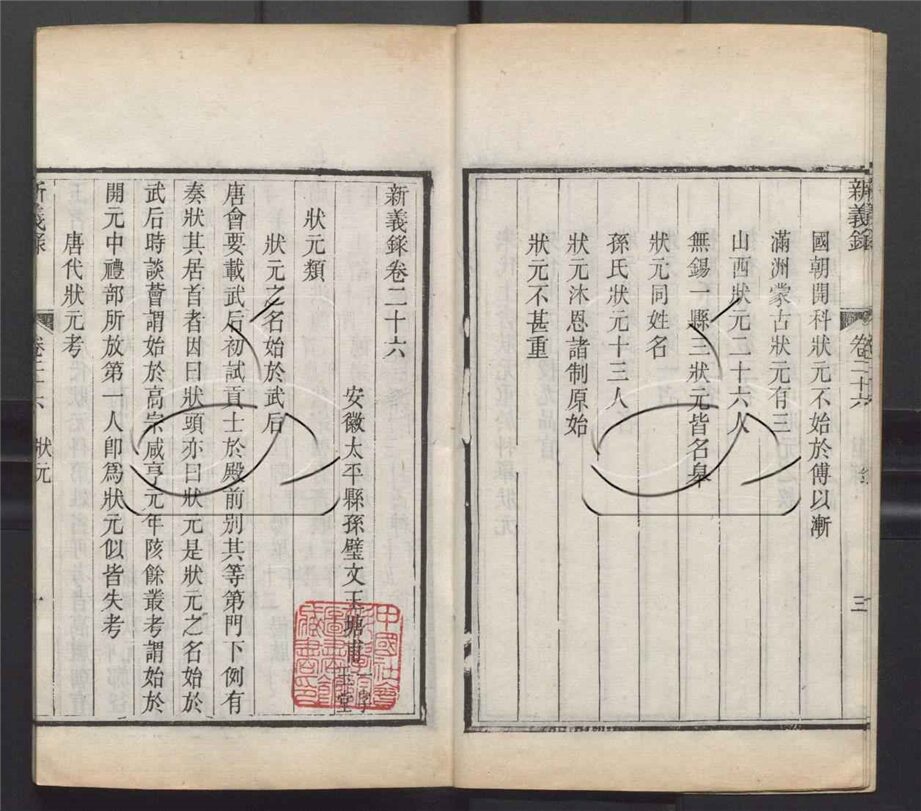 新義錄
卷二十六
三
國朝開科狀元不始於傅以漸
滿洲蒙古狀元有三
山西狀元二十六人
無錫一縣三狀元皆名皋
狀元同姓名
孫氏狀元十三人
狀元沐恩諸制原始
狀元不甚重
新義錄卷二十六
安徽太平縣孫璧文玉塘甫
狀元類
狀元之名始於武后
唐會要載武后初試貢士於殿前別其等第門下例有
奏狀其居首者因曰狀頭亦曰狀元是狀元之名始於
武后時談薈謂始於高宗咸亨元年陔餘叢考謂始於
開元中禮部所放第一人卽爲狀元似皆失考
唐代狀元考
新義錄
卷二十六
狀元
一